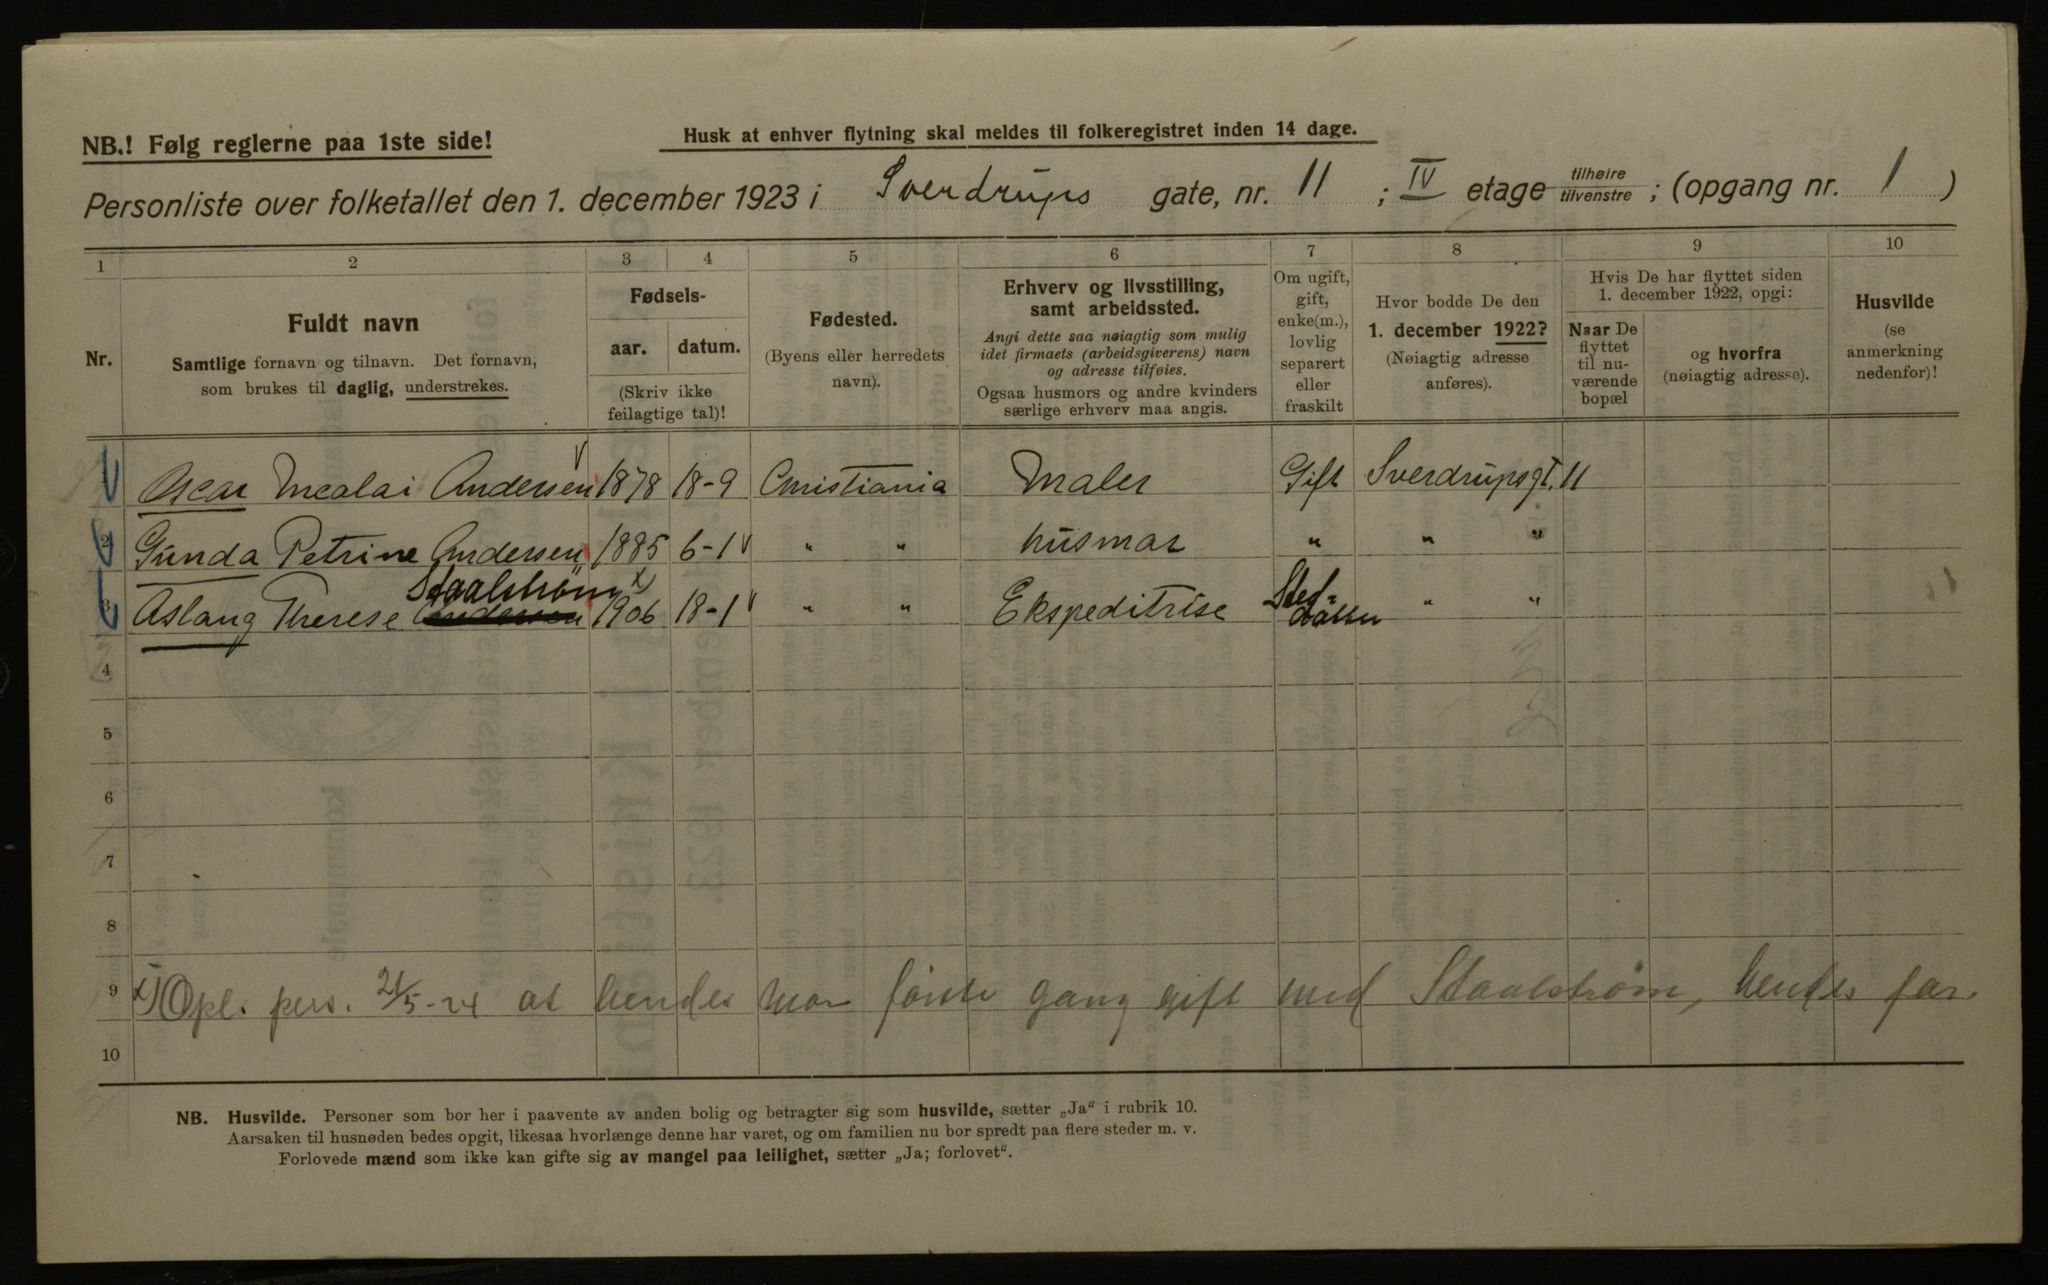 NB.! Følg reglerne paa 1ste side!
Husk at enhver flytning skal meldes til folkeregistret inden 14 dage.
Personliste over folketallet den 1. december 1923 i Sverdrups gate, nr. 11 ; IV etage tilhøire/tilvenstre ; (opgang nr. 1 )
1 2 3 4 5 6 7 8 9 10
Nr.
Fuldt navn
Samtlige fornavn og tilnavn. Det fornavn,
som brukes til daglig, understrekes.
Fødsels-
aar. datum.
(Skriv ikke
feilagtige tal)!
Fødested.
(Byens eller herredets
navn).
Erhverv og livsstilling,
samt arbeidssted.
Angi dette saa nøiagtig som mulig
idet firmaets (arbeidsgiverens) navn
og adresse tilføies.
Ogsaa husmors og andre kvinders
særlige erhverv maa angis.
Om ugift,
gift,
enke(m.),
lovlig
separert
eller
fraskilt
Hvor bodde De den
1. december 1922?
(Nøiagtig adresse
anføres).
Hvis De har flyttet siden
1. december 1922, opgi:
Naar De
flyttet
til nu-
værende
bopæl
og hvorfra
(nøiagtig adresse).
Husvilde
(se
anmerkning
nedenfor)!
1 Oscar Nicolai Andersen 1878 18-9 Christiania Maler Gift Sverdrupsgt. 11
2 Gunda Petrine Andersen 1885 6-1 " " husmor " " "
Staalstrøm x)
3 Aslaug Therese Andersen 1906 18-1 " " Ekspeditrise Sted-datter " "
4
5
6
7
8
9 x) Opl. pers. 21/5-24 at hendes mor første gang gift med Staalstrøm, hendes far.
10
NB. Husvilde. Personer som bor her i paavente av anden bolig og betragter sig som husvilde, sætter „Ja“ i rubrik 10.
Aarsaken til husnøden bedes opgit, likesaa hvorlænge denne har varet, og om familien nu bor spredt paa flere steder m. v.
Forlovede mænd som ikke kan gifte sig av mangel paa leilighet, sætter „Ja; forlovet“.